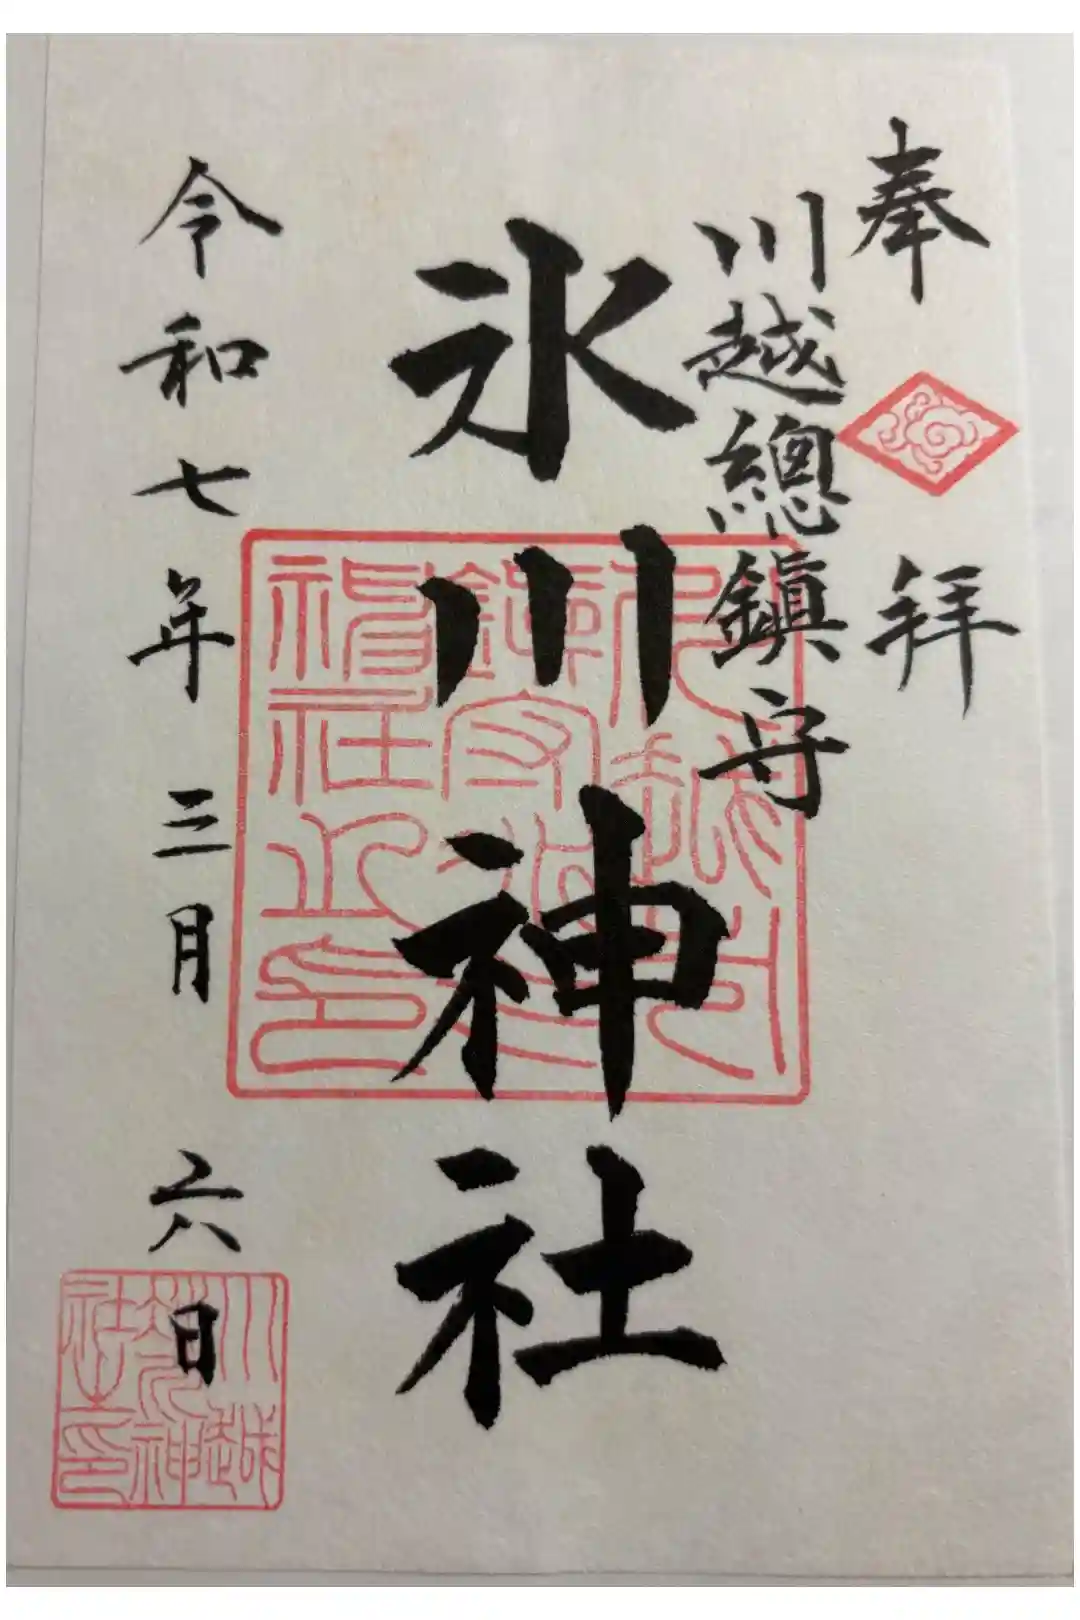 奉拜
川越總鎮守
氷川神社
令和七年三月六日